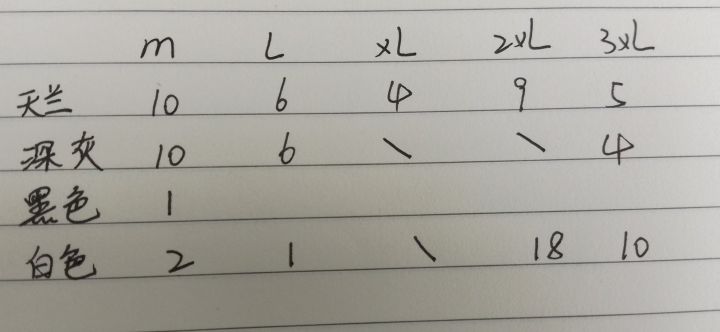 m L XL 2XL 3XL
天兰 10 6 4 9 5
深灰 10 6 \ \ 4
黑色 1
白色 2 1 \ 18 10